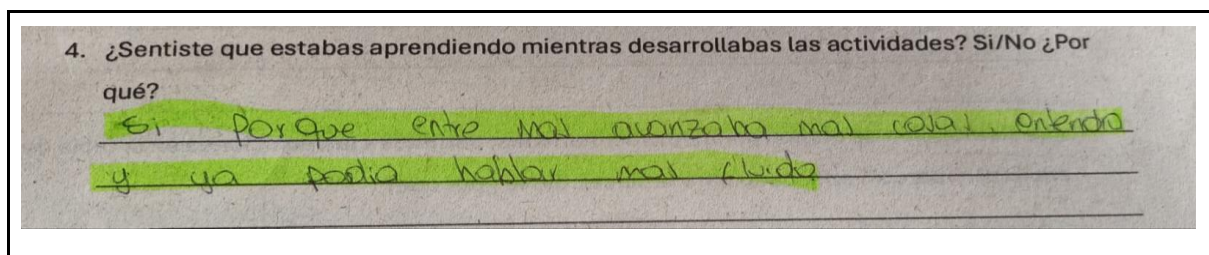 4. ¿Sentiste que estabas aprendiendo mientras desarrollabas las actividades? Si/No ¿Por
qué?
Si porque entre mas avanzaba mas cosas entendia
y ya podia hablar mas fluido